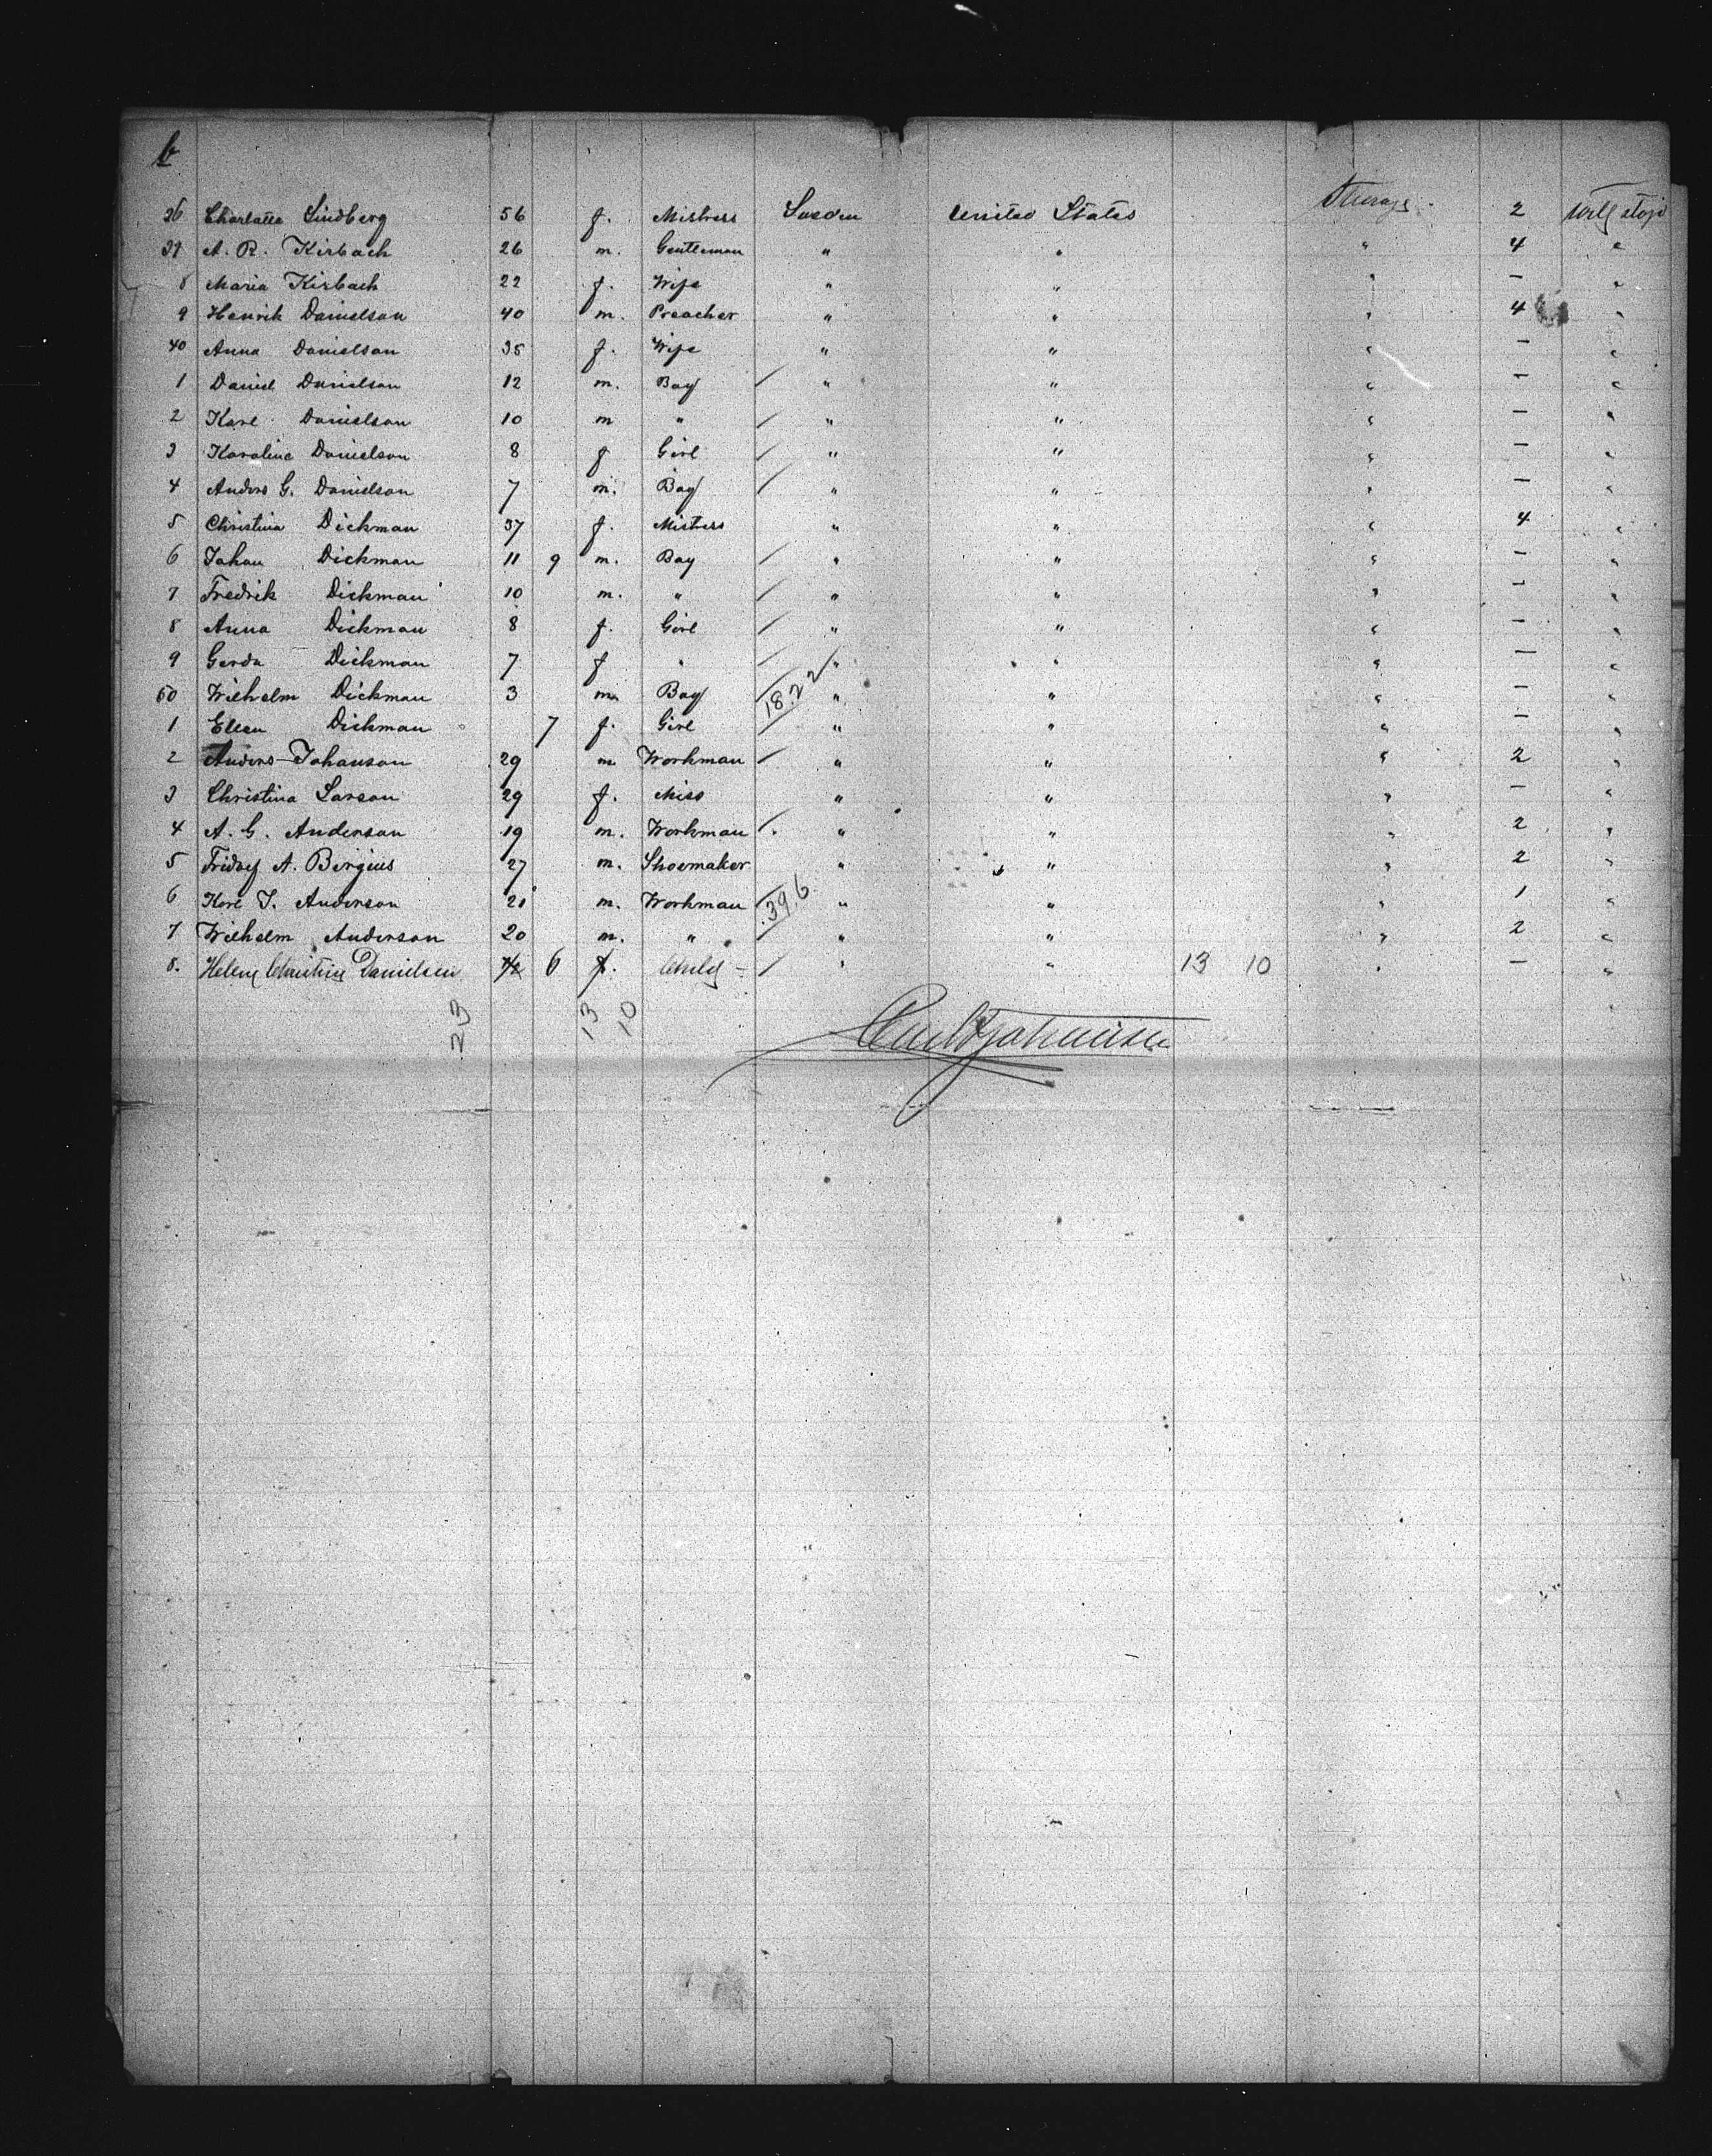 6
36 Charlotta Lindberg 56 f. Mistress Sweden United States Steerage 2
37 A. R. Kirbach 26 m. Gentleman " " " 4 "
8 Maria Kirbach 22 f. Wife " " " — "
9 Henrik Danielson 40 m. Preacher " " " 4 "
40 Anna Danielson 35 f. Wife " " " — "
1 Daniel Danielson 12 m. Boy / " " " — "
2 Karl Danielson 10 m " / " " " — "
3 Karolina Danielson 8 f Girl / " " " — "
4 Anders G. Danielson 7 m. Boy / " " " — "
5 Christina Dickman 37 f. Mistress " " " 4 "
6 Johan Dickman 11 9 m. Boy / " " " — "
7 Fredrik Dickman 10 m. " / " " " — "
8 Anna Dickman 8 f. Girl / " " " — "
9 Gerda Dickman 7 f " / " " " — "
50 Wilhelm Dickman 3 m Boy 1822 " " " — "
1 Ellen Dickman 7 f. Girl / " " " — "
2 Anders Johanson 29 m Workman / " " " 2 "
3 Christina Larson 29 f. Miss " " " — "
4 A. G. Anderson 19 m. Workman / " " " 2 "
5 A. Bergius 27 m. Shoemaker " " " 2 "
6 Karl J. Anderson 21 m. Workman 396 " " " 1 "
7 Wilhelm Anderson 20 m. " / " " " 2 "
8. Helena Christina Danielson 6 f. Child / " " 13 10 " — "
23 13 10